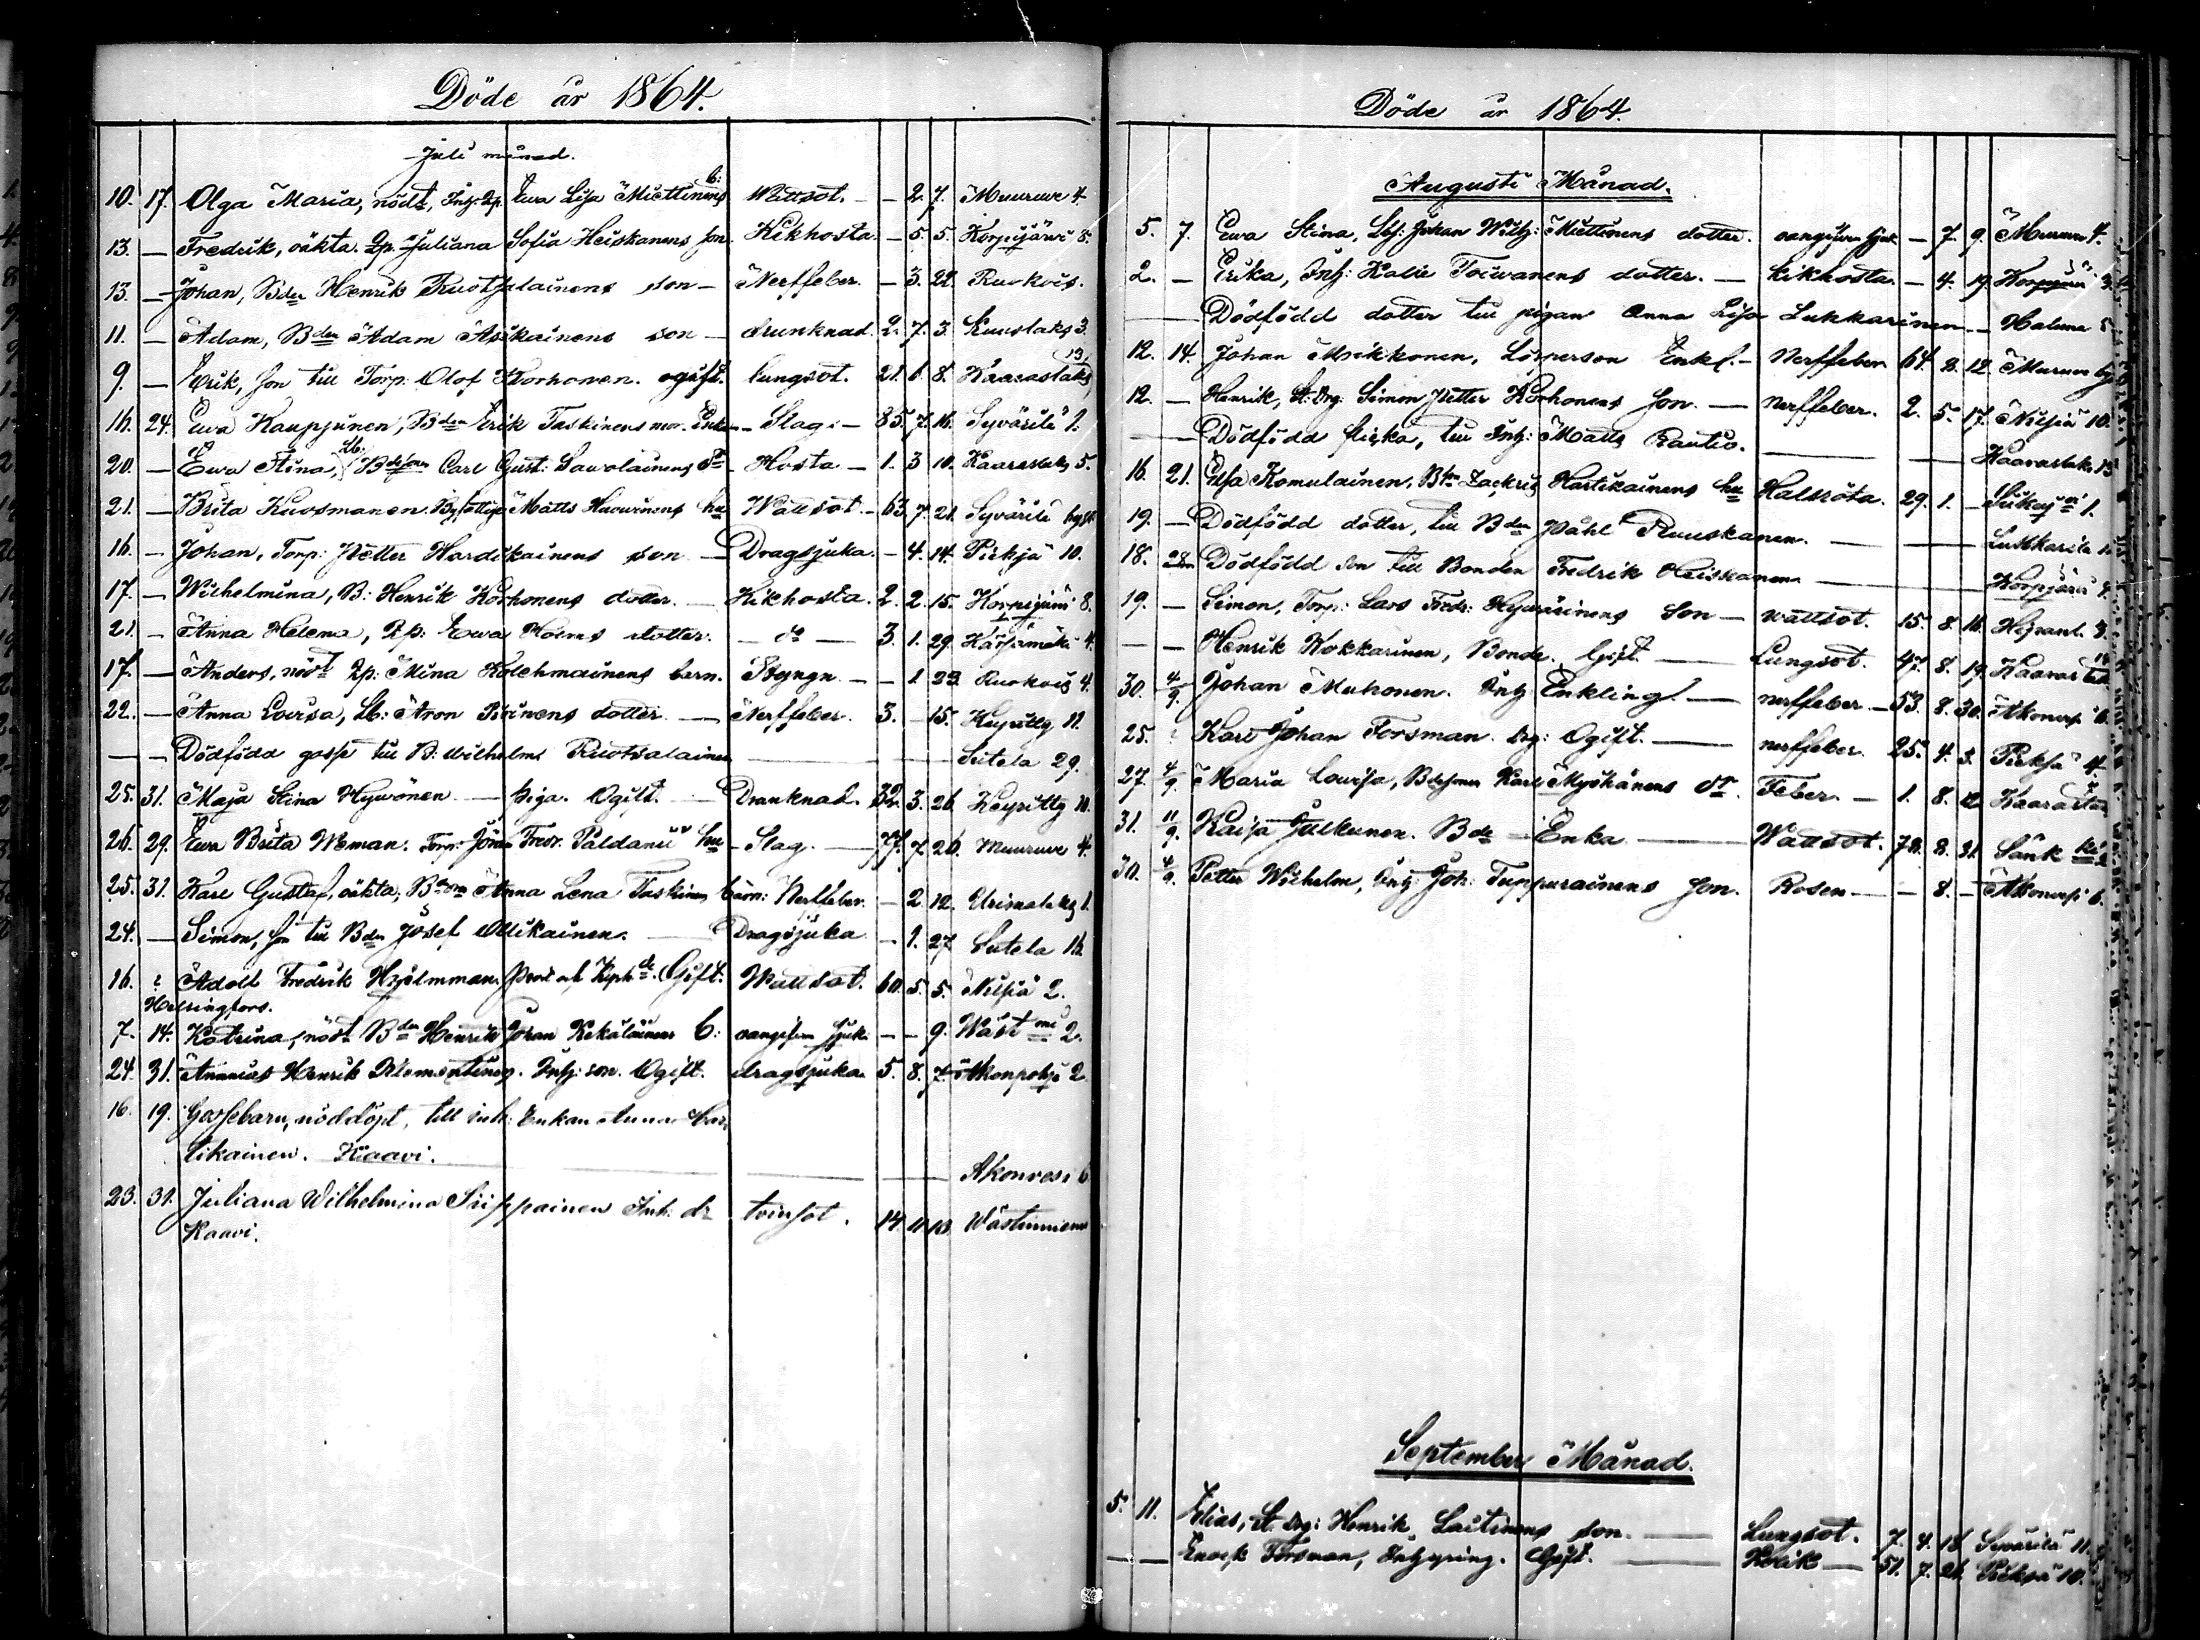 Döde år 1864.
Juli månad.
10. 17. Olga Maria, nödt, Inh. Qp. Ewa Lisa Miettinens b: Wattsot. - 2. 7. Muuruwe 4.
13. — Fredrik, oäkta. Qp. Juliana Sofia Heiskanens son. Kikhosta. - 5. 5. Korpijärvi 8.
13. — Johan, Bden Henrik Ruotsalainens son — Nerffeber. - 3. 22. Ruokois.
11. — Adam, Bden Adam Asikainens son — drunknad. 2. 7. 3. Kuuslaks 3.
9. — Erik, son till Torp: Olof Korhonen. ogift. lungsot. 21. 1. 8. Kaaraslaks 13.
16. 24. Ewa Kaupjunen, Bden Erik Taskinens mor. Enka — Slag. — 85. 7. 16. Syvärilä 1.
20. — Ewa Stina, Bdeson Carl Gust: Sawolainens dr Hosta — 1. 3 10. Kaaraslaks 5.
21. — Brita Kuosmanen. Byfattige Matts Huurinens hu Wattsot — 63. 7. 21. Syvärilä byst
16. — Johan, Torp: Petter Hardikainens son — Dragsjuka. - 4. 14. Pieksä 10.
17. — Wilhelmina, B: Henrik Korhonens dotter. — Kikhosta. 2. 2. 15. Korpijärvi 8.
21. — Anna Helena, Ewa Holms dotter. — do — 3. 1. 29. Kärsämäki 4.
17. — Anders, nödt Qp. Mina Kolehmainens barn. Styngn. — - 1 23. Ruokois 4.
22. — Anna Lovisa, Aron dotter — Nerffeber. 3. - 15. Keyritty 11.
— — Dödfödd gosse till B. Wilhelm Ruotsalainen — Sutela 29.
25. 31. Maja Stina Hywönen — piga. Ogift. — Drunknad. 32. 3. 26. Keyritty 11.
26. 29. Ewa Brita Weman. Torp: Jöran Fredr. Paldanii hu — Slag. — 77. 7. 26. Muuruwe 4.
25. 31. Karl Gustaf, oäkta, Anna Lena Taskinens barn: Nerffeber. - 2 12. 1.
24. — Simon, son till Bden Josef Ollikainen. — Dragsjuka - 1. 27 Sutela 16
16. Adolf Fredrik Hjelmman, Gift. Wattsot. 60. 5. 5. Nilsiä 2.
Helsingfors.
7. 14. Katrina, nödt Bden Henrik Johan Kekäläinens b: oangifven sjuk: - - 9. Wäst mi 2.
24. 31. Ananias Henrik Klementinus. Inh: son. Ogift. dragsjuka. 5. 8. 7. Akonpohja 2
16. 19. Gossebarn, nöddöpt, till inh: Enkan Anna Har-
tikainen. Kaavi. — Akonvesi 6
23. 31. Juliana Wilhelmina Siippainen Inh: dr tvinsot. 14. 11. 13. Wästinniemi
Kaavi.
Döde år 1864.
Augusti Månad.
5. 7. Ewa Stina, Johan Wilh: Miettinens dotter. oangifven sjuk — 7. 9. Muuruwe 4.
2. — Erika, Inh: Kalle Toiwanens dotter. — kikhosta. — 4. 19. Korpijärvi 3.
Dödfödd dotter till pigan Anna Lisa Lukkarinen — Haluna 5
12. 14. Johan Mikkonen, Lösperson Enkl. — Nerffeber 64. 8. 12. Muuruwe by
12. — Henrik, St. Drg: Simon Petter Korhonens son. — Nerffeber. 2. 5. 17. Nilsiä 10.
— Dödfödd flicka, till Inh: Matts Rautio. — Kaaraslaks 15
16. 21. Elsa Komulainen, Zackris Hartikainens hu Halsröta. 29. 1. — 1.
19. — Dödfödd dotter, till Bden Påhl Ruuskanen. — Lukkarila 1.
18. 28. Dödfödd son till Bonden Fredrik Heiskanen — Korpijärvi 7.
19. — Simon, Torp: Lars Fredr: Hyvärinens son — wattsot. 15. 8. 16. 3.
— — Henrik Kokkarinen, Bonde. Gift. — Lungsot. 47. 8. 19. Kaaras laks
30. 4/9. Johan Muhonen. Inh Enkling. — nerffeber — 53. 8. 30. Akonvesi 6.
25. Karl Johan Forsman. drg: Ogift. — nerffeber. 25. 4. 3. Pieksä 4.
27. 4/9. Maria Lovisa, Bdesonen Karl Myöhänens dr. Feber. — 1. 8. 12. Kaaraslax
31. 11/9. Kaisa Julkunen. Bde Enka — Wattsot. 72. 8. 31. Sänk ki
30. 4/9. Petter Wilhelm, Inh: Joh: Tuppurainens son. Rosen — — 8. — Akonvesi 6.
September Månad.
5. 11. Elias, St. Drg: Henrik Laitinens son. — Lungsot. 7. 4. 18. Syvärilä 11.
— — Enock Forsman, Inhysing. Gift. — Kolik — 51. 7. 26. Pieksä 10.